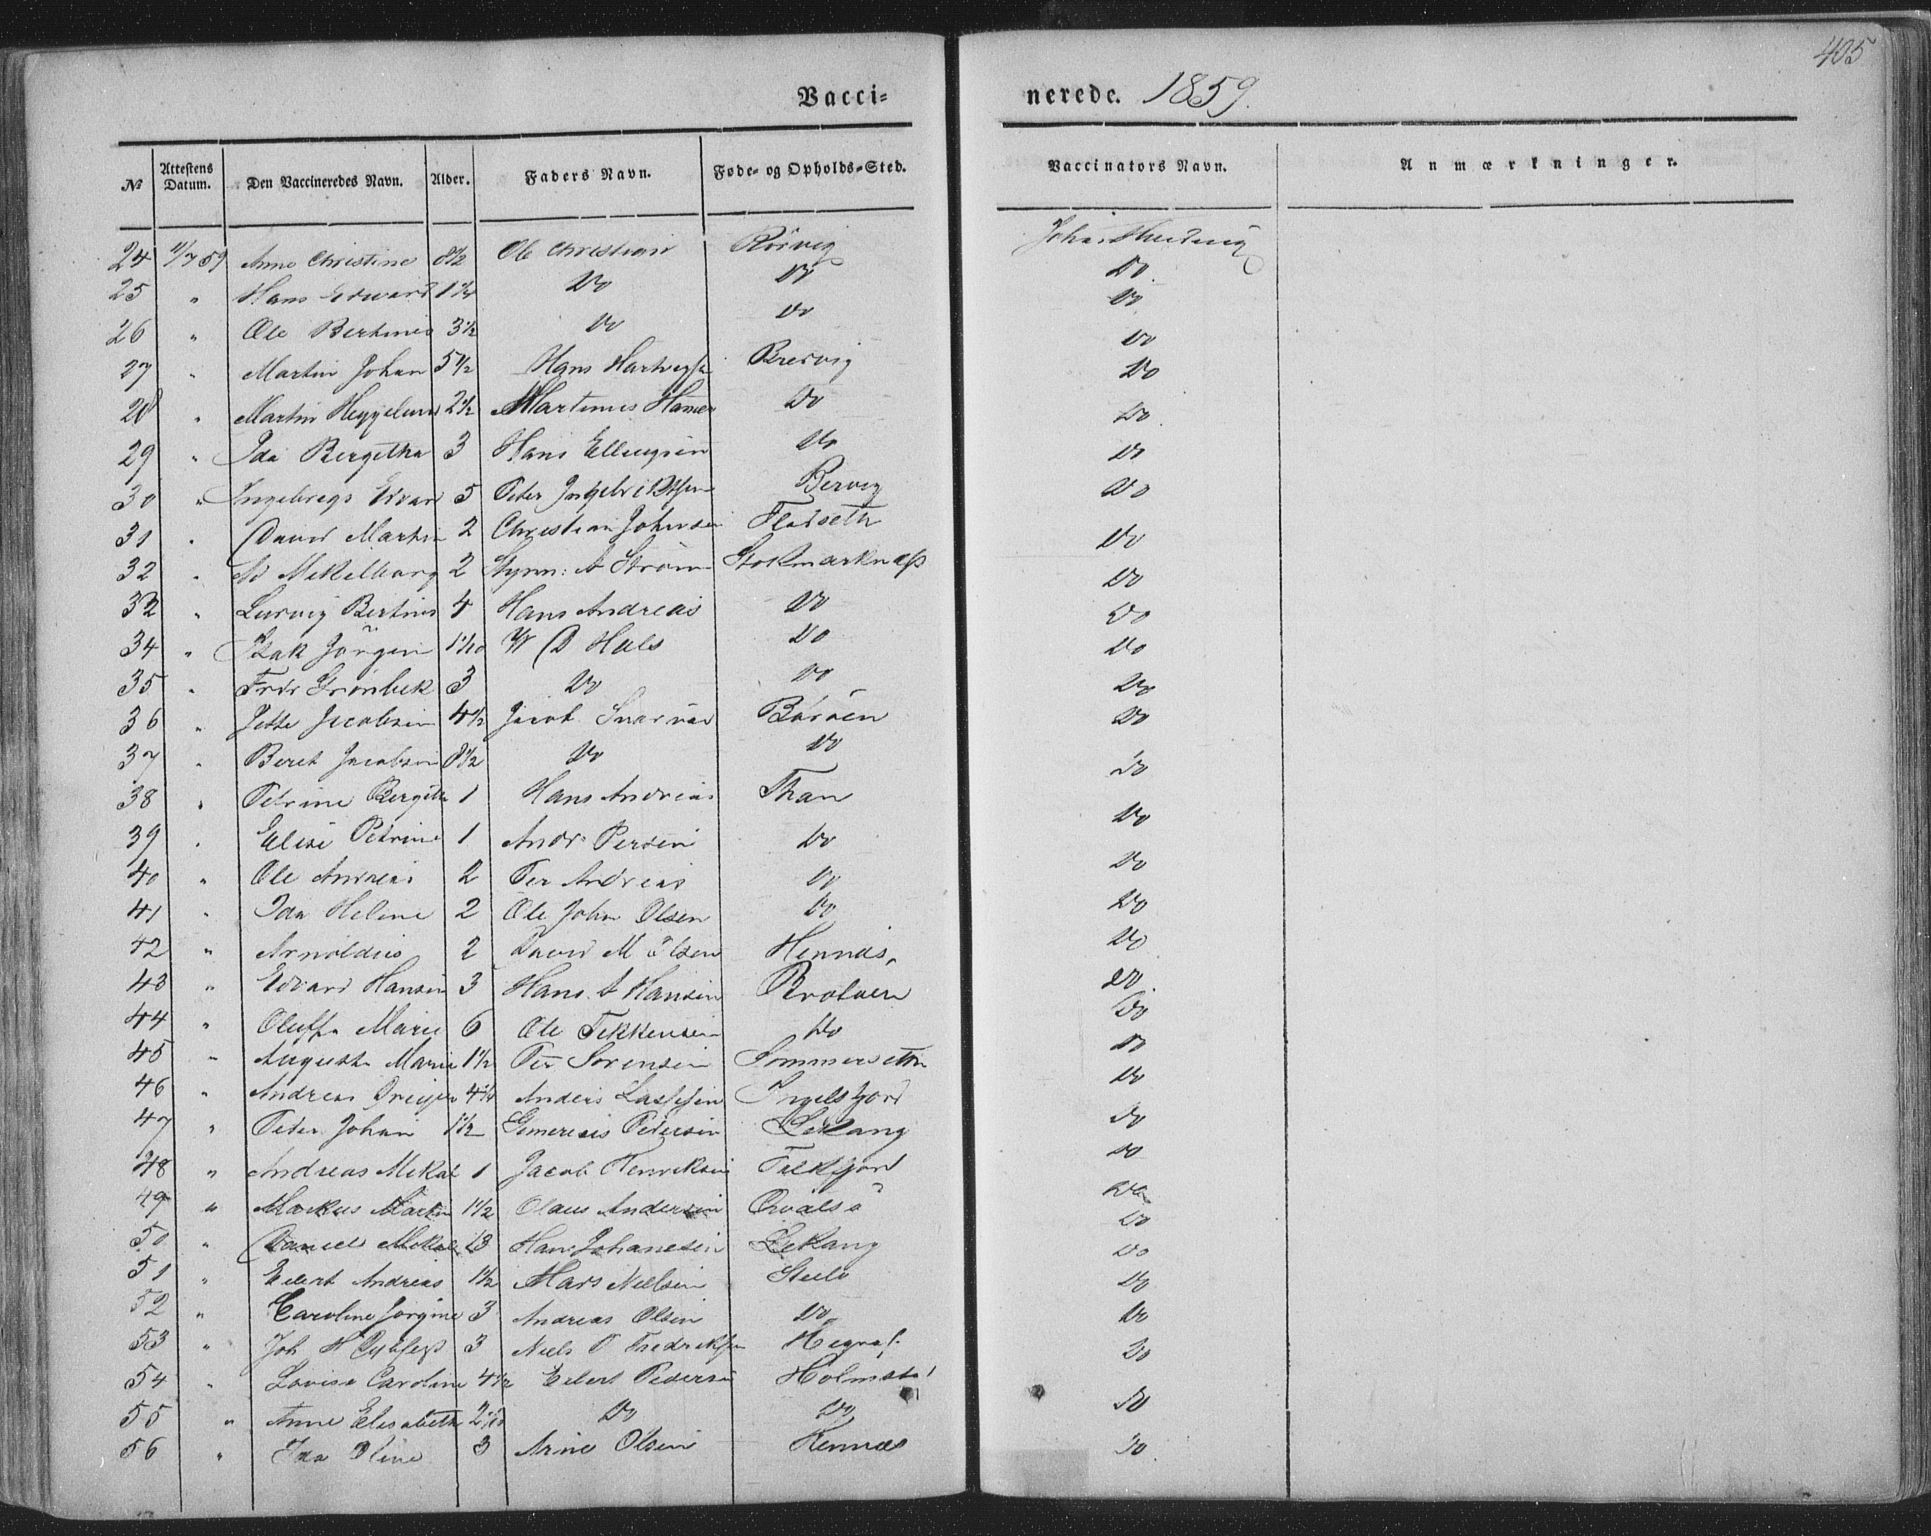 405
Vacci- nerede. 1859.
№ Attestens Datum. Den Vaccineredes Navn. Alder. Faders Navn. Føde- og Opholds-Sted. Vaccinators Navn. Anmærkninger.
24 11/7 59 Anne Christine 8 1/2 Ole Christian Rörvig Johan
25 " Hans Edward 1 1/4 Do Do Do
26 " Ole Bertines 3 1/2 Do Do Do
27 " Martin Johan 5 1/2 Hans Hartvigs Bredvig Do
28 " Martin Heggelund 2 1/2 Martinus Hansen Do Do
29 " Ida Bergitha 3 Hans Ellingsen Do Do
30 " Ingebregt Edvard 5 Peter Ingebrigtsen Bervig Do
31 " David Martin 2 Christian Johnsen Fladseth Do
32 " Mekelborg 2 A Strøm Stokmarknæs Do
33 " Ludvig Bertins 4 Hans Andreas Do Do
34 " Isak Jörgin 1 1/10 W D Hals Do Do
35 " Fredr Grønbek 3 Do Do Do
36 " Jette Jacobsen 4 1/2 Jacob Børøen Do
37 " Beret Jacobsen 8 1/2 Do Do Do
38 " Petrine Bergitha 1 Hans Andreas Than Do
39 " Elise Petrine 1 Andr. Persen Do Do
40 " Ole Andreas 2 Per Andreas Do Do
41 " Ida Helene 2 Ole Johan Olsen Do Do
42 " Arnoldus 2 David M Olsen Hennæs Do
43 " Edvard Hansen 3 Hans A Hansen Brotøen Do
44 " Oluffa Marie 6 Ole Tekkensen Do Do
45 " Augusta Marie 1 1/2 Per Sørensen Sommersetter Do
46 " Andreas Dreyer 4 1/4 Anders Lassesen Ingelsfjord Do
47 " Peter Johan 1 1/2 Emereus Pedersen Lekang Do
48 " Andreas Mikal 1 Jacob Henriksen Falkfjord Do
49 " Markus Martin 1 1/2 Olaus Andersen Qvalsö Do
50 " Daniel Mikal 13 Hans Johanesen Lekang Do
51 " Edert Andreas 1 1/2 Mads Nielsen Steilo Do
52 " Caroline Jorgine 3 Andreas Olsen Do Do
53 " Joh H Dybfest 3 Niels O Fredriksen Hegraf. Do
54 " Lovise Caroline 4 1/2 Edert Pedersen Holmstad Do
55 " Anne Elisabeth 2 1/10 Do Do Do
56 " Ida Oline 3 Arine Olsen Hennæs Do